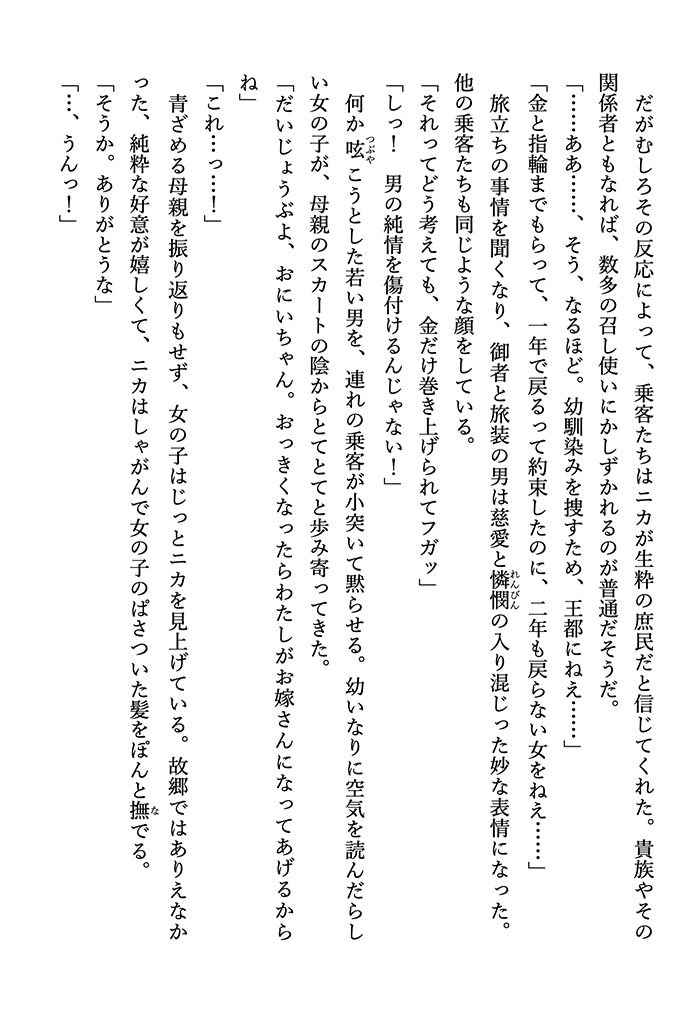 だがむしろその反応によって、乗客たちはニカが生粋の庶民だと信じてくれた。貴族やその
関係者ともなれば、数多の召し使いにかしずかれるのが普通だそうだ。
「……ああ……、そう、なるほど。幼馴染みを捜すため、王都にねえ……」
「金と指輪までもらって、一年で戻るって約束したのに、二年も戻らない女をねえ……」
旅立ちの事情を聞くなり、御者と旅装の男は慈愛と憐憫の入り混じった妙な表情になった。
他の乗客たちも同じような顔をしている。
「それってどう考えても、金だけ巻き上げられてフガッ」
「しっ！　男の純情を傷付けるんじゃない！」
何か呟こうとした若い男を、連れの乗客が小突いて黙らせる。幼いなりに空気を読んだらし
い女の子が、母親のスカートの陰からとてとてと歩み寄ってきた。
「だいじょうぶよ、おにいちゃん。おっきくなったらわたしがお嫁さんになってあげるから
ね」
「これ…っ…！」
青ざめる母親を振り返りもせず、女の子はじっとニカを見上げている。故郷ではありえなか
った、純粋な好意が嬉しくて、ニカはしゃがんで女の子のぱさついた髪をぽんと撫でる。
「そうか。ありがとうな」
「…、うんっ！」